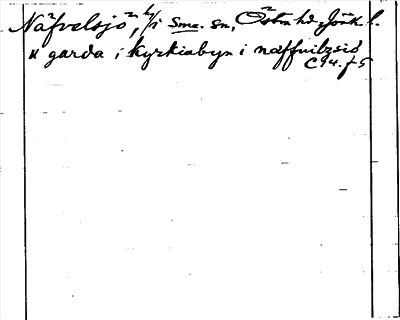 Näfvelsjö, i Sme. sn, Östra hd, Jönk. l.
u garda i kyrkiabyn i næffuilzsio
C 14. f 5